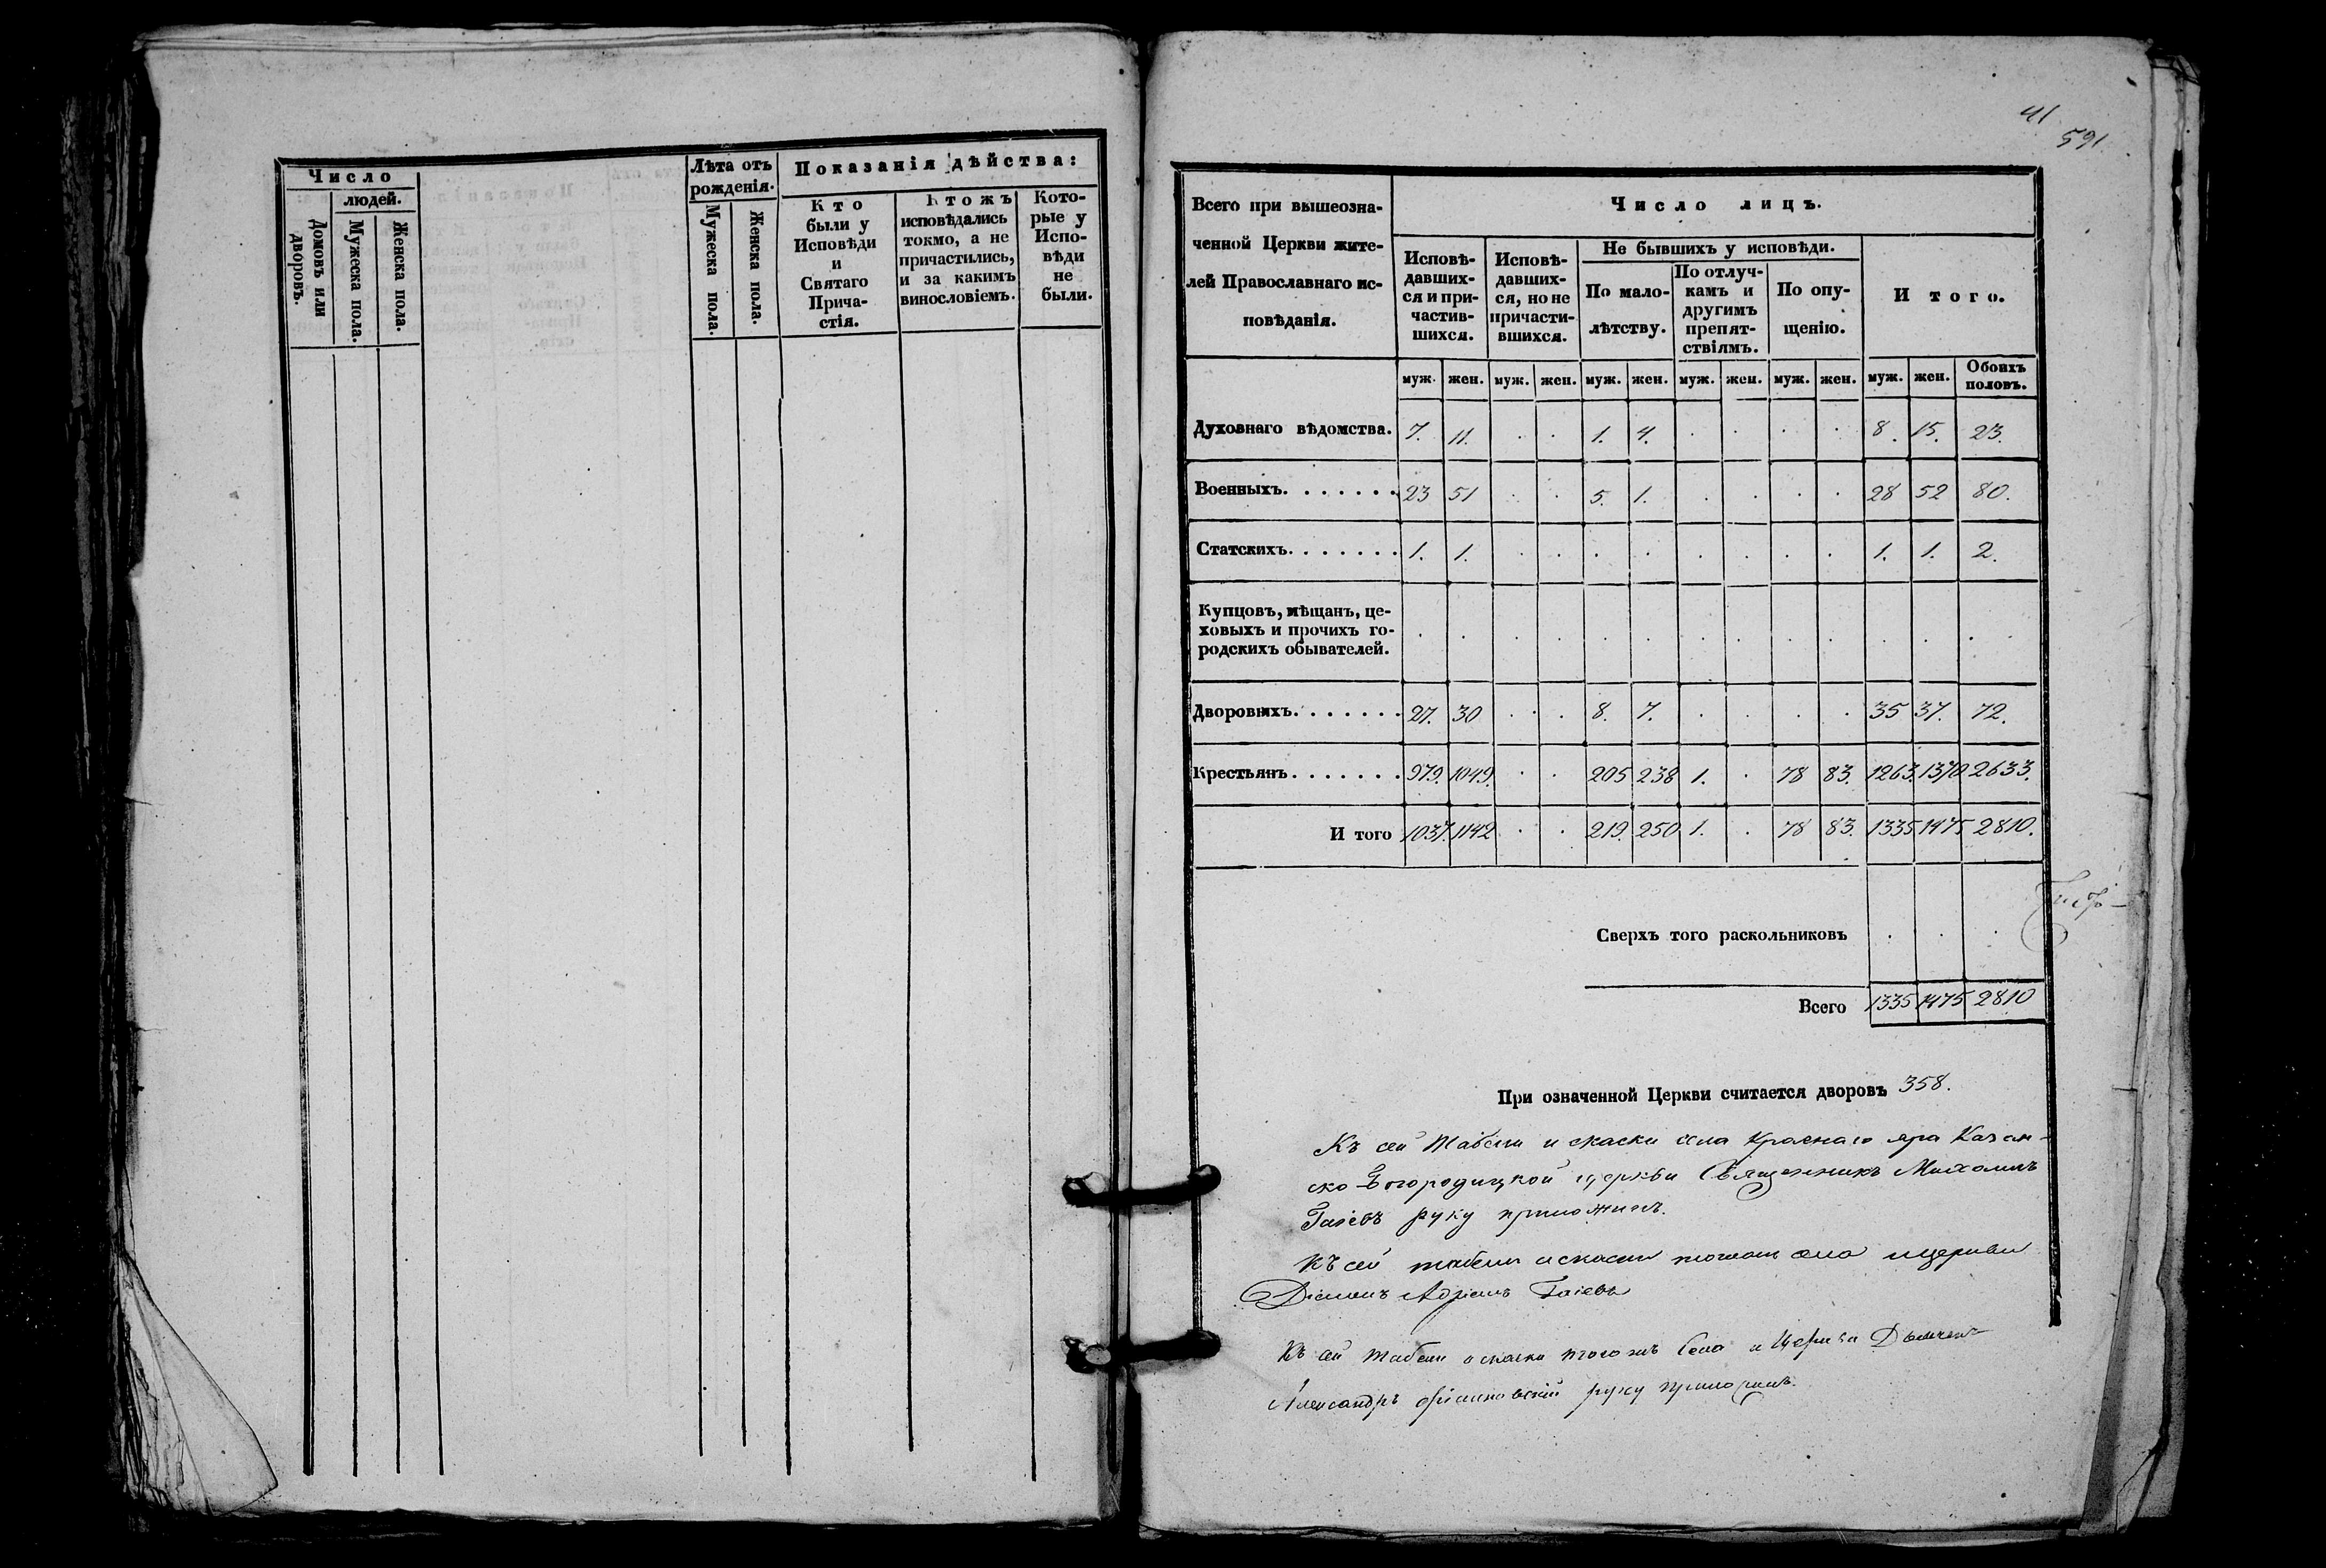 Число
людей.
Домовъ или дворовъ.
Мужеска пола.
Женска пола.
Лѣта отъ
рожденія.
Мужеска пола.
Женска пола.
Показанія дѣйства:
Кто
были у
Исповѣди
и
Святаго
Прича-
стія.
Ктожъ
исповѣдались
токмо, а не
причастились,
и за какимъ
винословіемъ.
Кото-
рые у
Испо-
вѣди
не
были.
41
591
Всего при вышеозна-
ченной Церкви жите-
лей Православнаго ис-
повѣданія.
Число лицъ.
Исповѣ-
давших-
ся и при-
частив-
шихся.
Исповѣ-
давших-
ся, но не
причасти-
вшихся.
Не бывшихъ у исповѣди.
По мало-
лѣтству.
По отлуч-
камъ и
другимъ
препят-
ствіямъ.
По опу-
щенію.
И того.
муж. жен. муж. жен. муж. жен. муж. жен. муж. жен. муж. жен. Обоихъ половъ.
Духовнаго вѣдомства. 7. 11. . . 1. 4. . . . . 8. 15. 23.
Военныхъ. . . . . . . 23 51 . . 5. 1. . . . . 28 52 80.
Статскихъ. . . . . . . 1. 1. . . . . . . . . 1. 1. 2.
Купцовъ, мѣщанъ, це-
ховыхъ и прочихъ го-
родскихъ обывателей. . . . . . . . . . . . . .
Дворовыхъ. . . . . . . 27. 30 . . 8. 7. . . . . 35 37. 72.
Крестьянъ. . . . . . . 979. 1049. . . 205 238 1. . 78 83. 1263. 1370 2633.
И того 1037. 1142 . . 219. 250 1. . 78 83. 1335 1475 2810.
Сверхъ того раскольниковъ . . .
Всего 1335 1475 2810
При означенной Церкви считается дворовъ 358.
Къ сей табели и скаски села Краснаго яра Казан-
ско-Богородицкой церкви Священникъ Михаилъ
Гаіевъ руку приложилъ.
Къ сей табели и скаски тогожъ села и церкви
Діаконъ Адріанъ Гаіевъ
Къ сей табели и скаски тогожъ села и Церкви Дьячекъ
Александръ руку приложилъ.